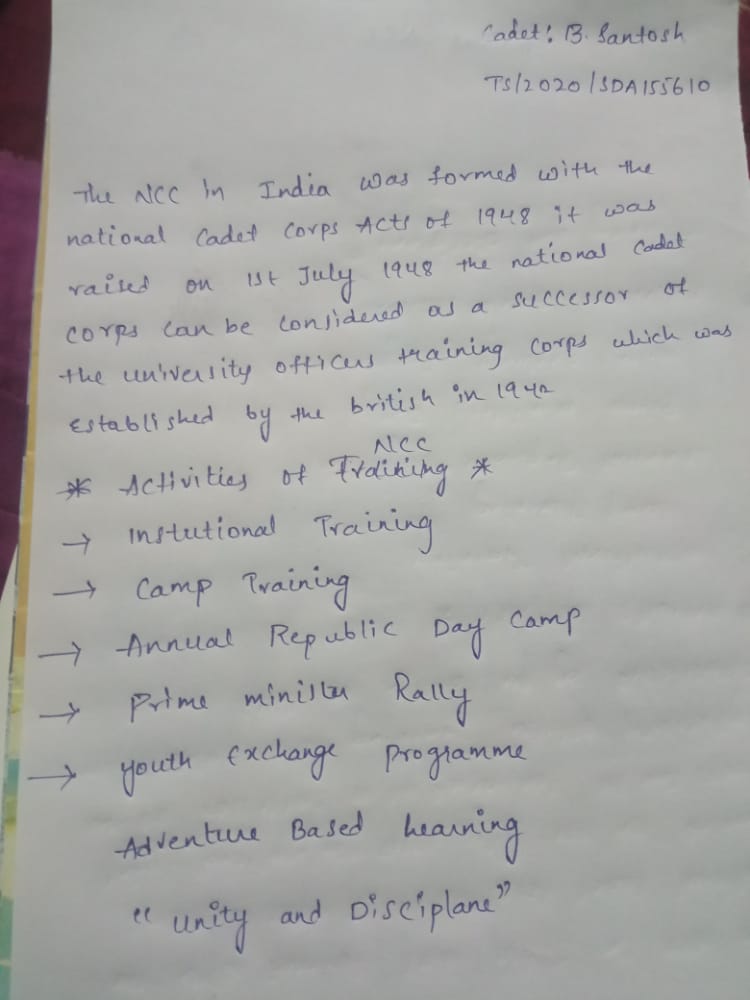 Cadet: B. Santosh
TS/2020/SDA155610
The NCC in India was formed with the
national Cadet Corps Acts of 1948 it was
raised on 1st July 1948 the national Cadet
corps can be considered as a successor of
the university officers training corps which was
Established by the british in 1942
NCC
* Activities of Training *
→ Instutional Training
→ Camp Training
→ Annual Republic Day Camp
→ Prime minister Rally
→ youth Exchange Programme
Adventure Based Learning
"Unity and Disciplane"